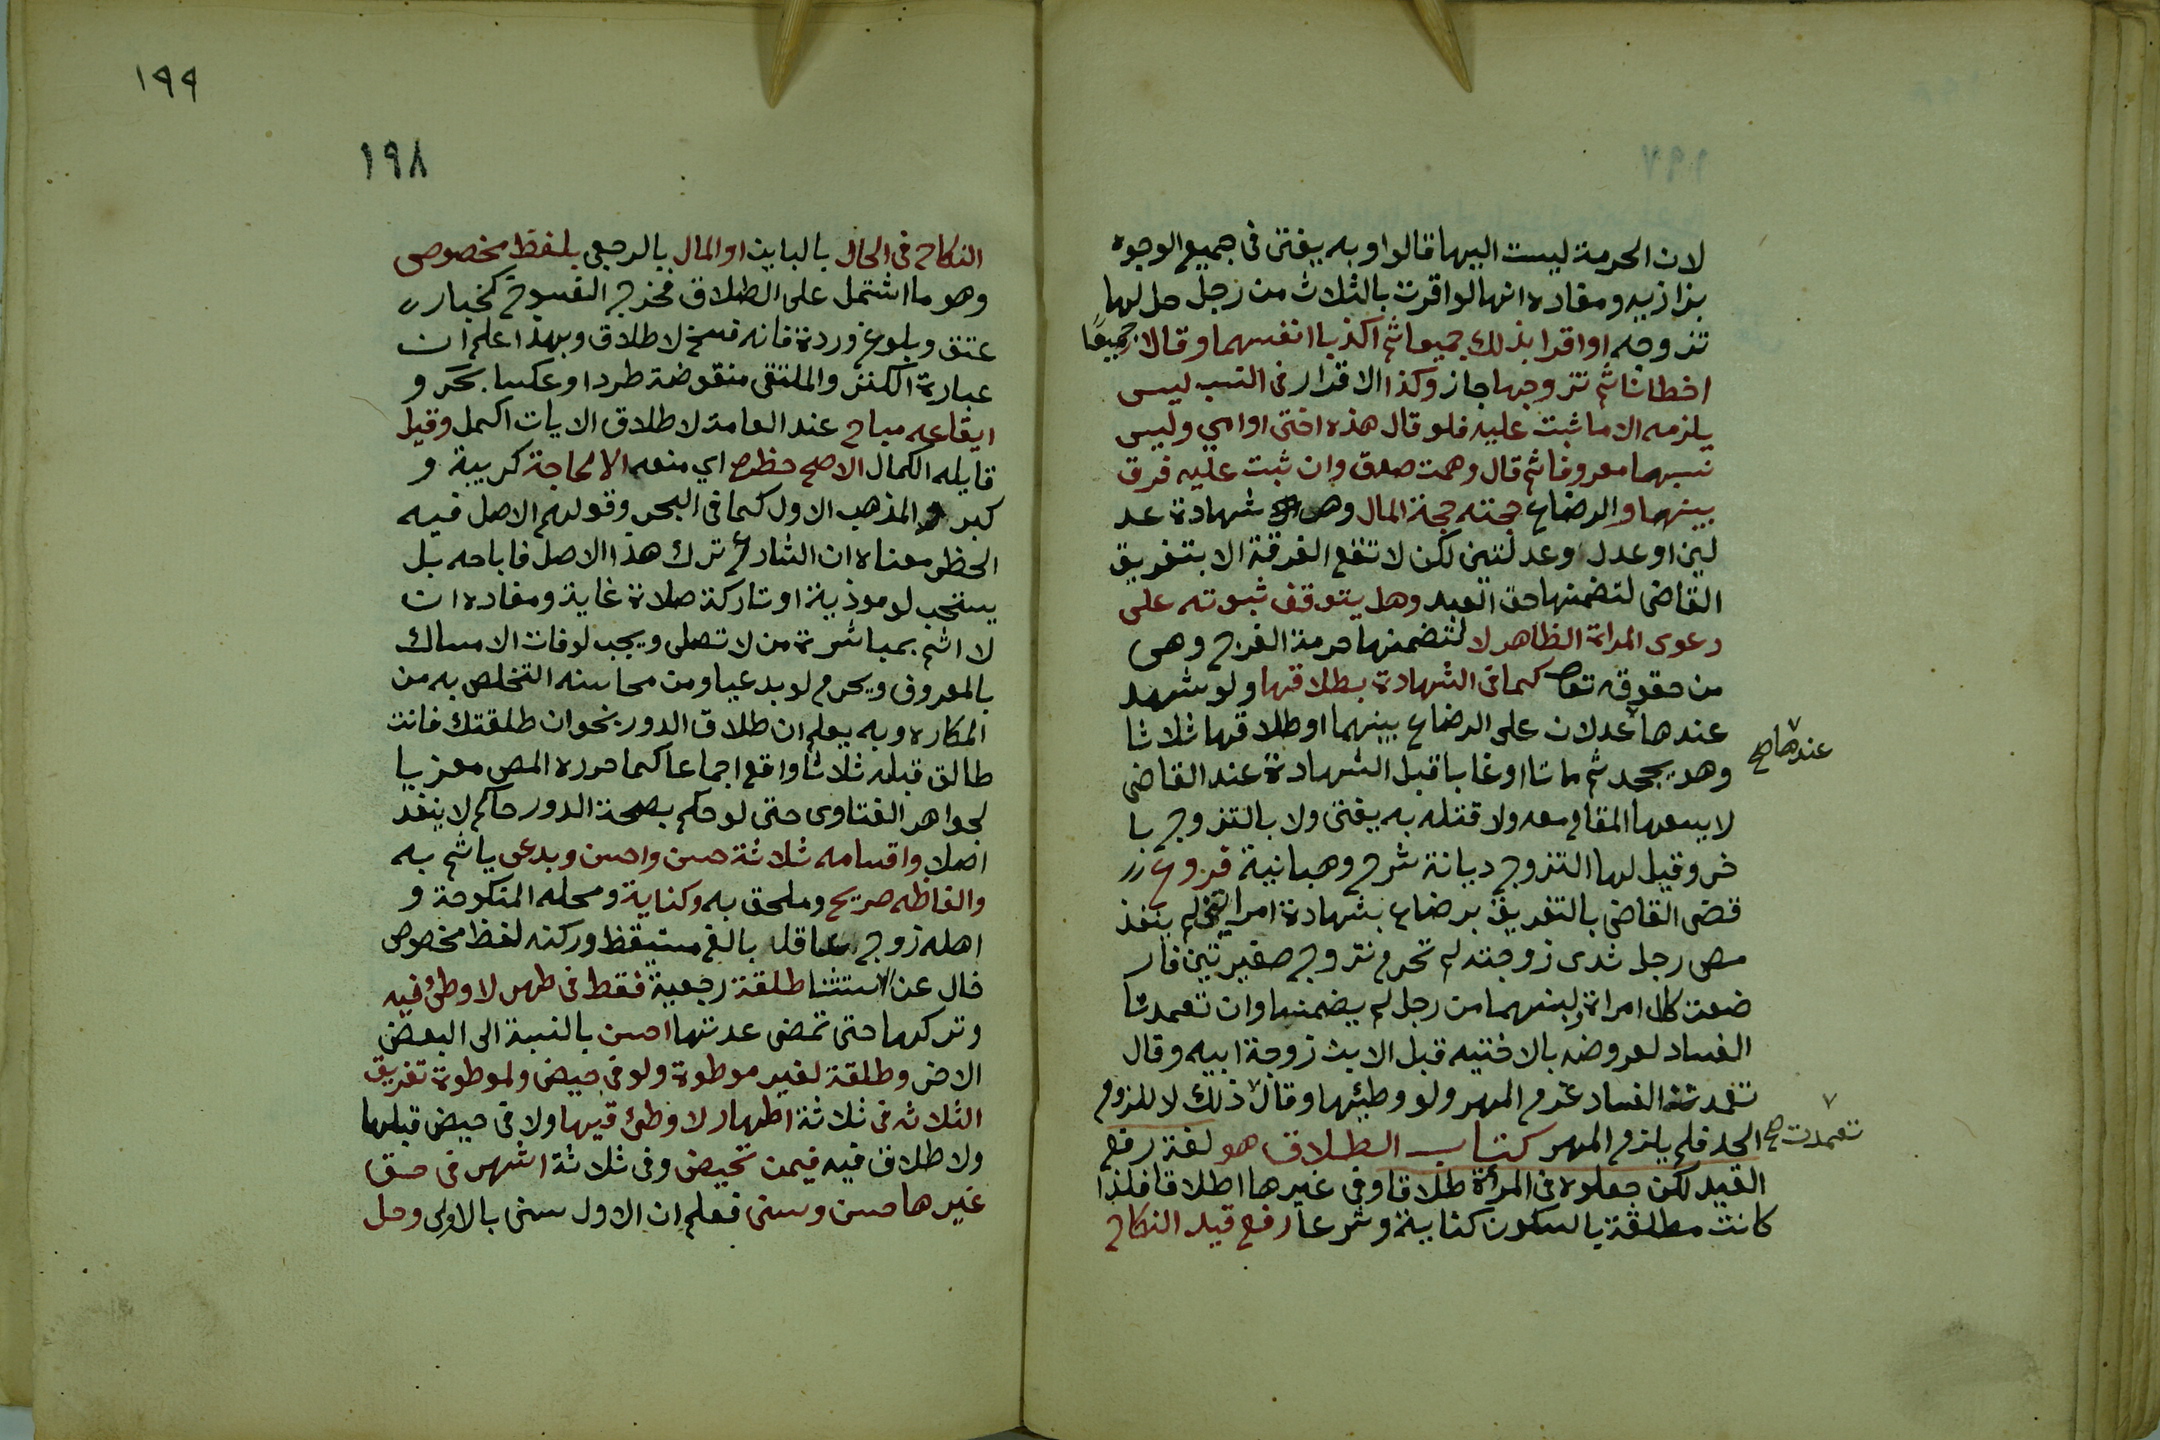 لان الحرمة ليست اليها قالوا وبه يفتى فى جميع الوجوه
بزازيه ومفاده انها لو اقرت بالثلاث من رجل حل لها
تزوجه او اقرا بذلك جميعا ثم اكذبا انفسهما وقالا جميعًا
اخطانا ثم تزوجها جاز وكذا الاقرار فى النسب ليس
يلزمه الا ما ثبت عليه فلو قال هذه اختى او امي وليس
نسبهما معروفا ثم قال وهمت صدق وان ثبت عليه فرق
بينهما والرضاع حجته حجة المال وهى شهادة عد
لين او عدل وعدلتين لكن لا تقع الفرقة الا بتفريق
القاضى لتضمنها حق العبد وهل يتوقف ثبوته على
دعوى المراة الظاهر لا لتضمنها حرمة الفرج وهى
من حقوقه تعا كما فى الشهادة بطلاقها ولو شهد
عندها عدلان على الرضاع بينهما او طلاقها ثلاثا
عندها صح
وهو يجحد ثم ماتا او غابا قبل الشهادة عند القاضى
لا يسعها المقام معه ولا قتله به يفتى ولا بالتزوج با
خر وقيل لها التزوج ديانة شرح وهبانية فروع
قضى القاضى بالتفريق برضاع بشهادة امراتين لم ينفذ
مص رجل ثدى زوجته لم تحرم تزوج صغيرتين فار
ضعت كلا امراة ولبنهما من رجل لم يضمنها وان تعمدتا
الفساد لعروضه بالاختيه قبل الابن زوجة ابيه وقال
تعمدته الفساد غرم المهر ولو وطئها وقال ذلك لا للزوم
تعمدت صح
الحد فلم يلزم المهر كتاب الطلاق هو لغة رفع
القيد لكن جعلوه فى المرأة طلاقا وفى غيرها اطلاقا فلذا
كانت مطلقة بالسكون كناية وشرعا رفع قيد النكاح
١٩٩
١٩٨
النكاح فى الحال بالباين او المال بالرجعي بلفظ مخصوص
وهو ما اشتمل على الطلاق فخرج الفسوخ كخيار
عتق وبلوغ وردة فانه فسخ لا طلاق وبهذا علم ان
عبارة الكنز والملتقى منقوضة طردا وعكسا بحر و
ايقاعه مباح عند العامة لاطلاق الايات اكمل وقيل
قايله الكمال الاصح حظره اي منعه الا لحاجة كريبة و
كبر والمذهب الاول كما فى البحر وقولهم الاصل فيه
الحظر معناه ان الشارع ترك هذا الاصل فاباحه بل
يستحب لو موذية او تاركة صلاة غاية ومفاده ان
لا اثم بمباشرة من لا تصلى ويجب لو فات الامساك
بالمعروف ويحرم لو بدعيا ومن محاسنه التخلص به من
المكاره وبه يعلم ان طلاق الدور بنحو ان طلقتك فانت
طالق قبله ثلاثا واقع اجماعا كما حرره المص معزيا
لجواهر الفتاوى حتى لو حكم بصحة الدور حاكم لا ينفذ
اصلا واقسامه ثلاثة حسن واحسن وبدعى ياثم به
والفاظه صريح وملحق به وكناية ومحله المنكوحة و
اهله زوج عاقل بالغ مستيقظ وركنه لفظ مخصوص
خال عن الاستثنا طلقة رجعية فقط فى طهر لا وطئ فيه
وتركها حتى تمضى عدتها احسن بالنسبة الى البعض
الاخر وطلقة لغير موطوة ولو فى حيض ولموطوة تفريق
الثلاثه فى ثلاثة اطهار لا وطئ فيها ولا فى حيض قبلها
ولا طلاق فيه فيمن تحيض وفى ثلاثة اشهر فى حق
غيرها حسن وسنى فعلم ان الاول سنى بالاولى وحل